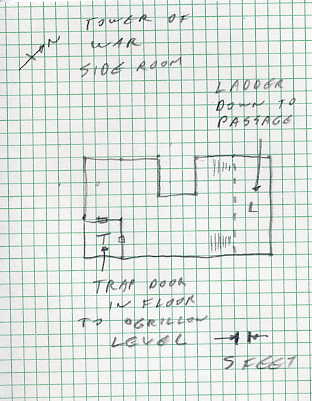 TOWER OF
WAR
SIDE ROOM
N
LADDER
DOWN TO
PASSAGE
L
T
TRAP DOOR
IN FLOOR
TO OGRILLON
LEVEL
5 FEET